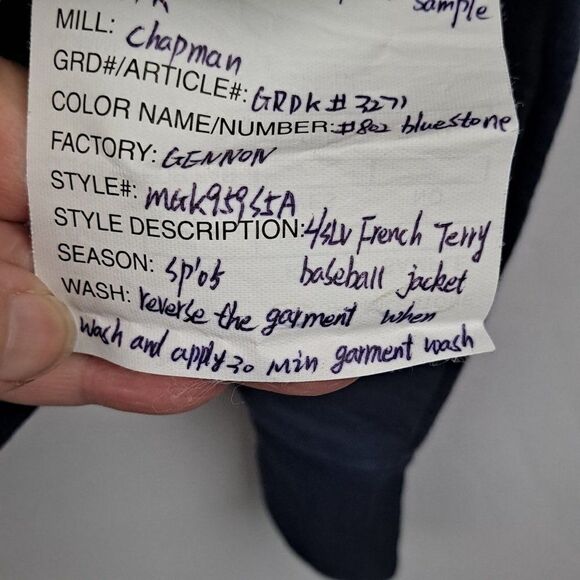 sample
MILL: Chapman
GRD#/ARTICLE#: GRDK #3271
COLOR NAME/NUMBER: #802 bluestone
FACTORY: GENNON
STYLE#:
STYLE DESCRIPTION: L/SLV French Terry
baseball jacket
SEASON: SP'05
WASH: reverse the garment when
wash and apply 30 min garment wash